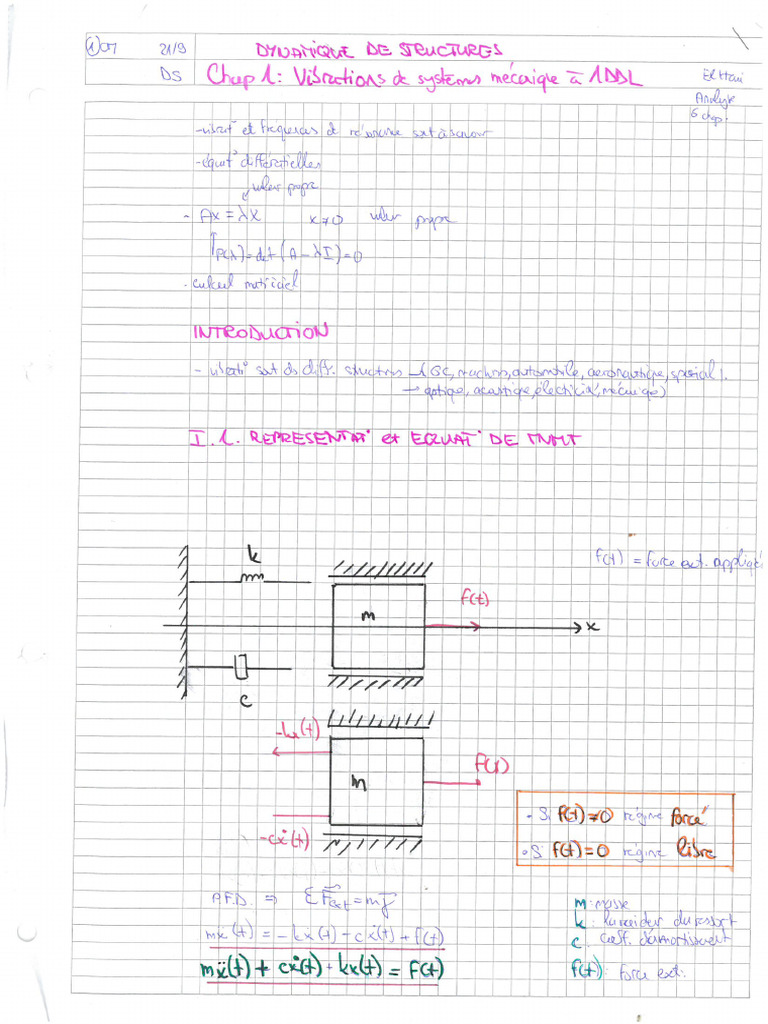 21/9 DYNAMIQUE DE STRUCTURES
DS Chap 1: Vibrations de systèmes mécanique à 1DDL
Analyse
6 chap.
- vibrat° et fréquences de résonance sont à savoir
- équat° différentielles
valeur propre
- Ax = λx x≠0 valeur propre
P(λ) = det (A - λI) = 0
- calcul matriciel
INTRODUCTION
- vibrat° sont ds diff. structures → (GC, machines, automobile, aéronautique, spatial).
→ optique, acoustique, électricité, mécanique)
I.1. REPRESENTAT° et EQUAT° DE MVMT
k
f(t) = force ext. appliquée
f(t)
m
x
c
-kx(t)
f(t)
m
-cẋ(t)
- Si f(t) ≠ 0 régime forcé
• Si f(t) = 0 régime libre
P.F.D. => Σ F⃗ext = mγ⃗
mẍ(t) = -kx(t) - cẋ(t) + f(t)
mẍ(t) + cẋ(t) + kx(t) = f(t)
m: masse
k: la raideur du ressort
c: coef. d'amortissement
f(t): force ext.